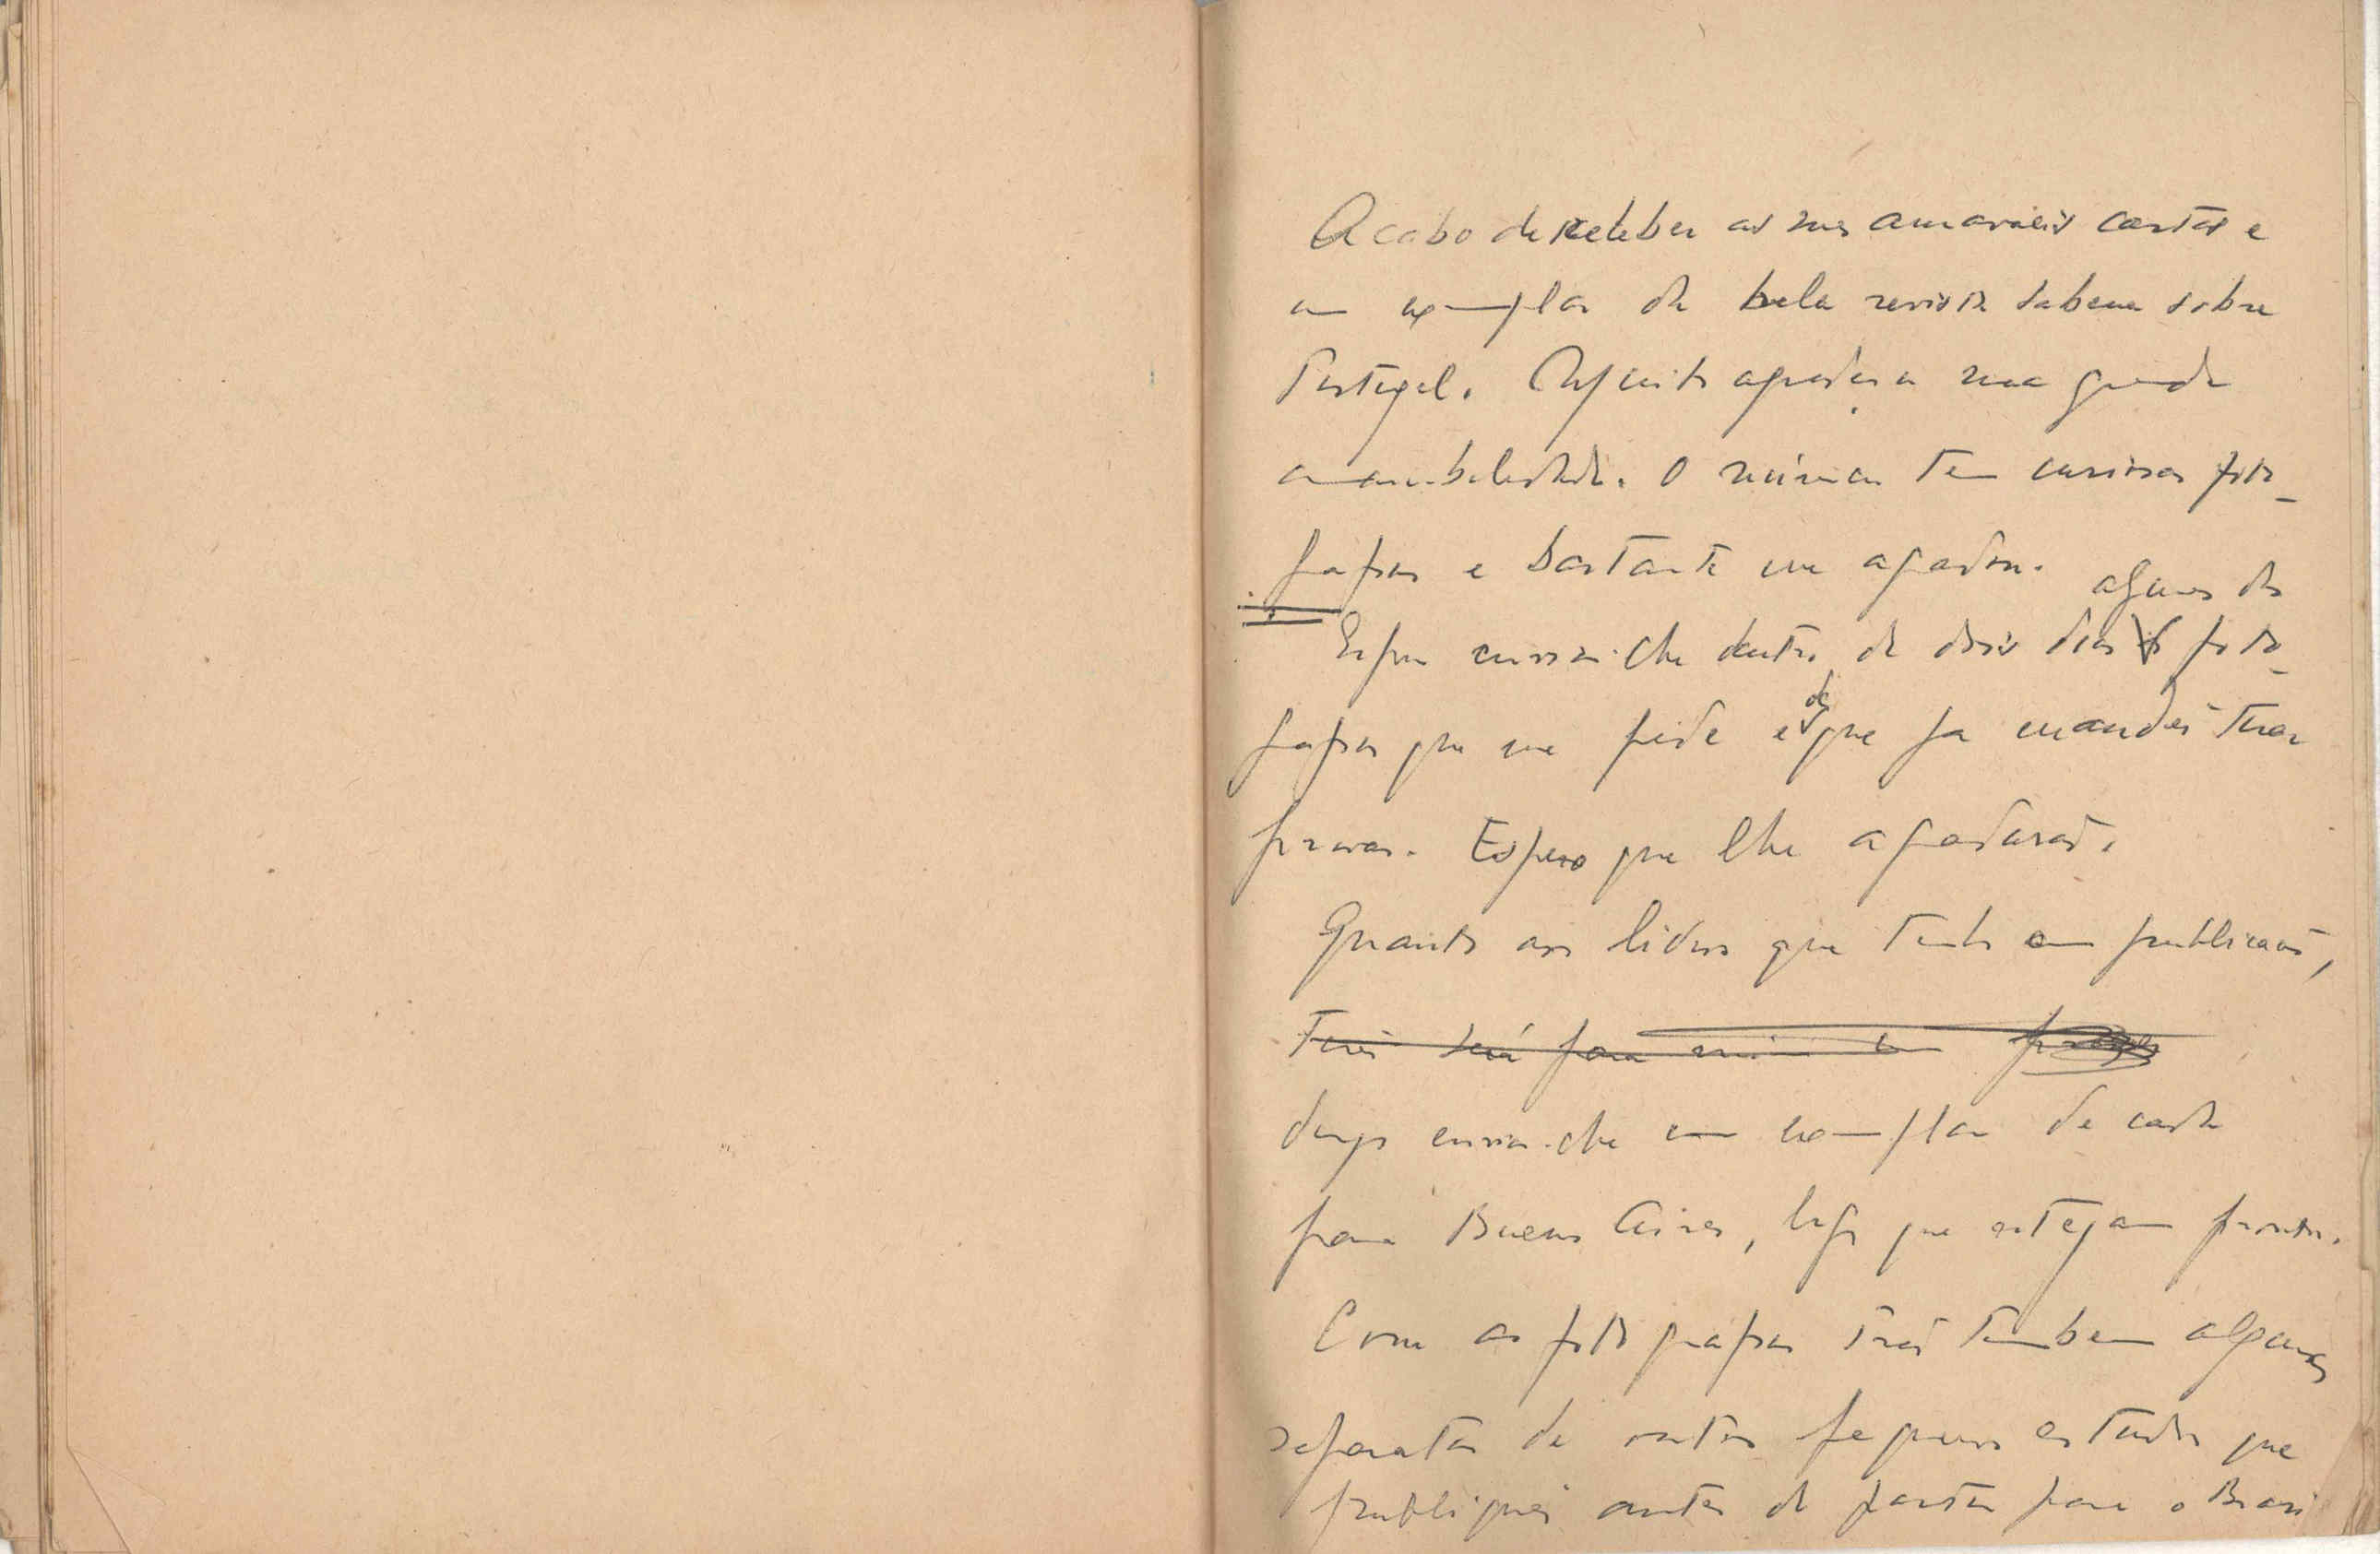 Acabo de receber as suas amaveis cartas e
um exemplar da bela revista Sabena sobre
Portugal. Muito agradeço a sua grande
amabilidade. O número tem curiosas foto-
grafias e bastante me agradou.
algumas das
Espero enviar-lhe dentro de dois dias foto-
grafias que me pede e de que ja mandei tirar
provas. Espero que lhe agradarão.
Quanto aos livros que tenho em publicação,
Terei será para mim um
desejo enviar-lhe um exemplar de cada
para Buenos Aires, logo que estejam prontos.
Com as fotografias irão tambem algumas
separatas de outros pequenos estudos que
publiquei antes de partir para o Brasil